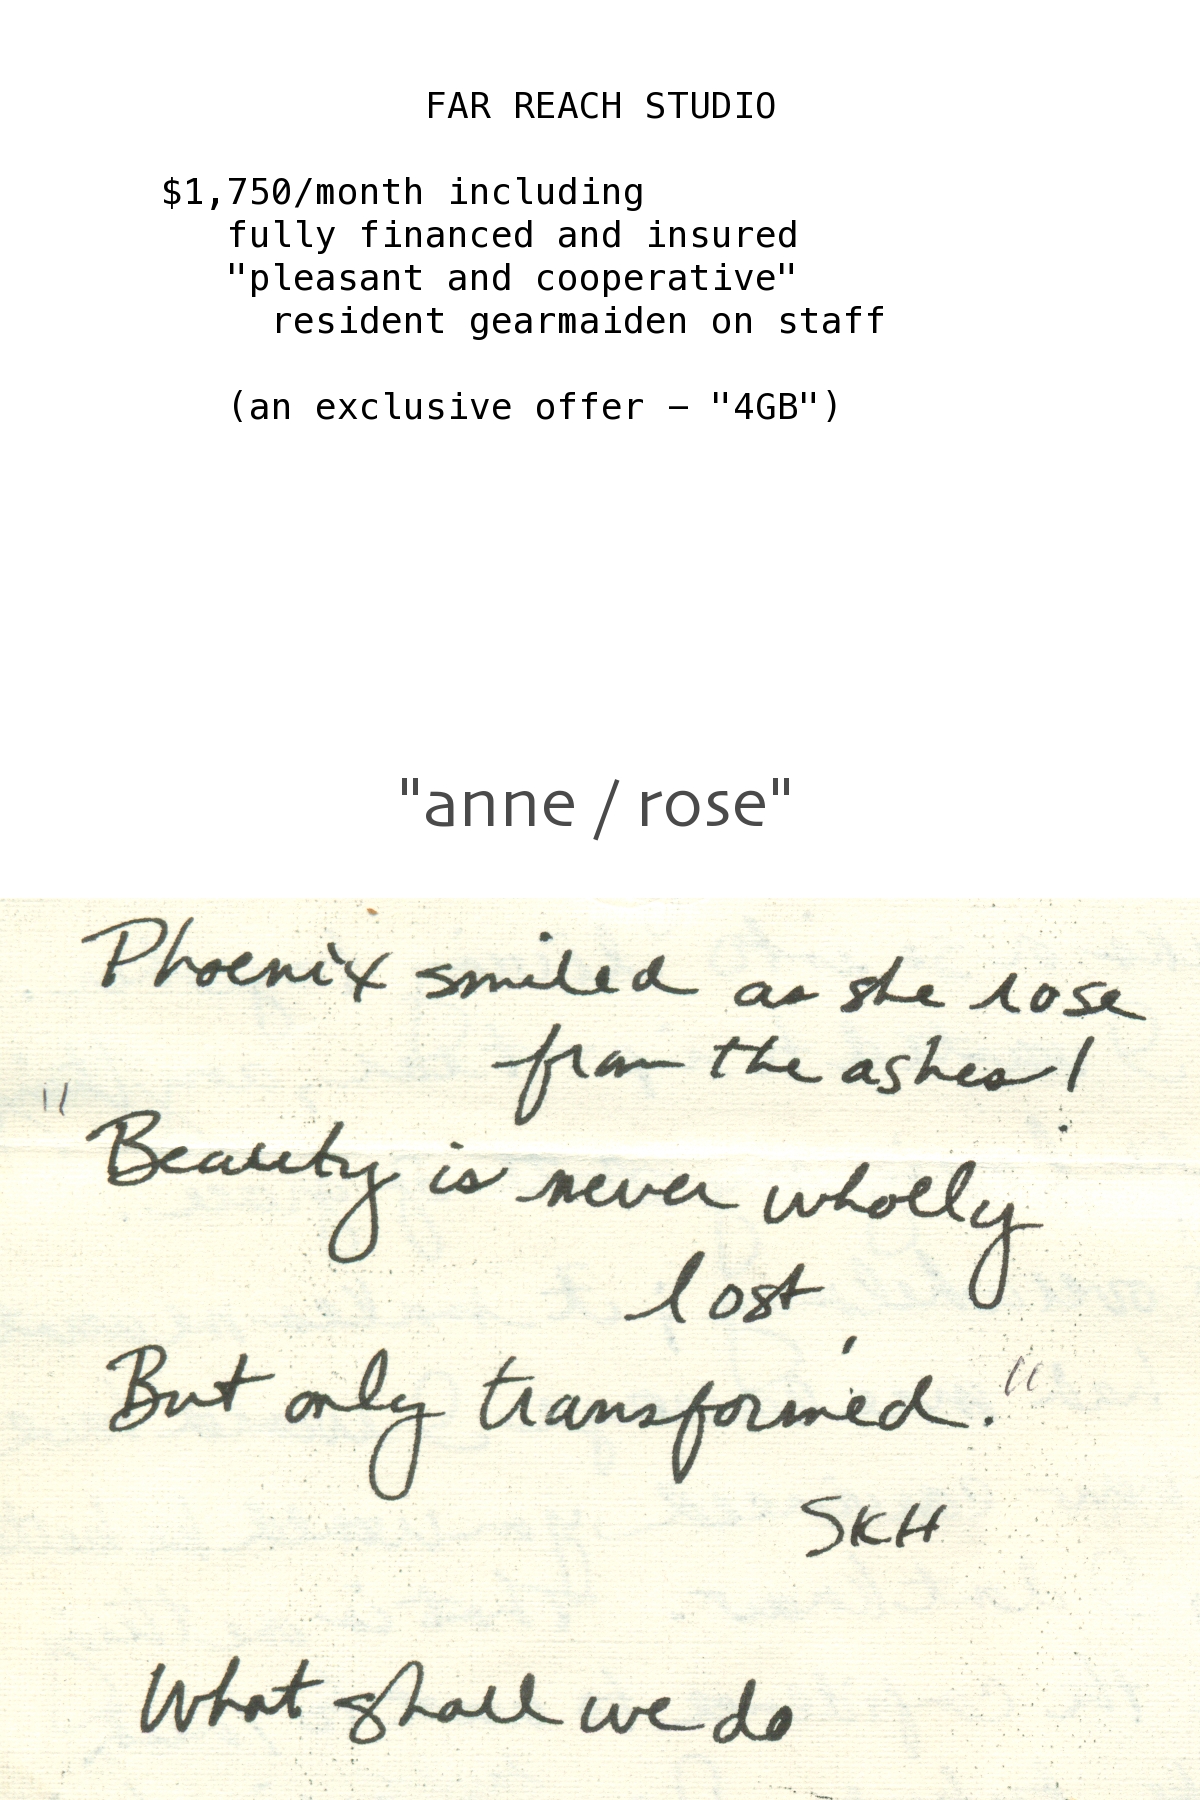 FAR REACH STUDIO
$1,750/month including
fully financed and insured
"pleasant and cooperative"
resident gearmaiden on staff
(an exclusive offer – "4GB")
"anne / rose"
Phoenix smiled as she rose
from the ashes!
"Beauty is never wholly
lost,
But only transformed."
SKH
What shall we do